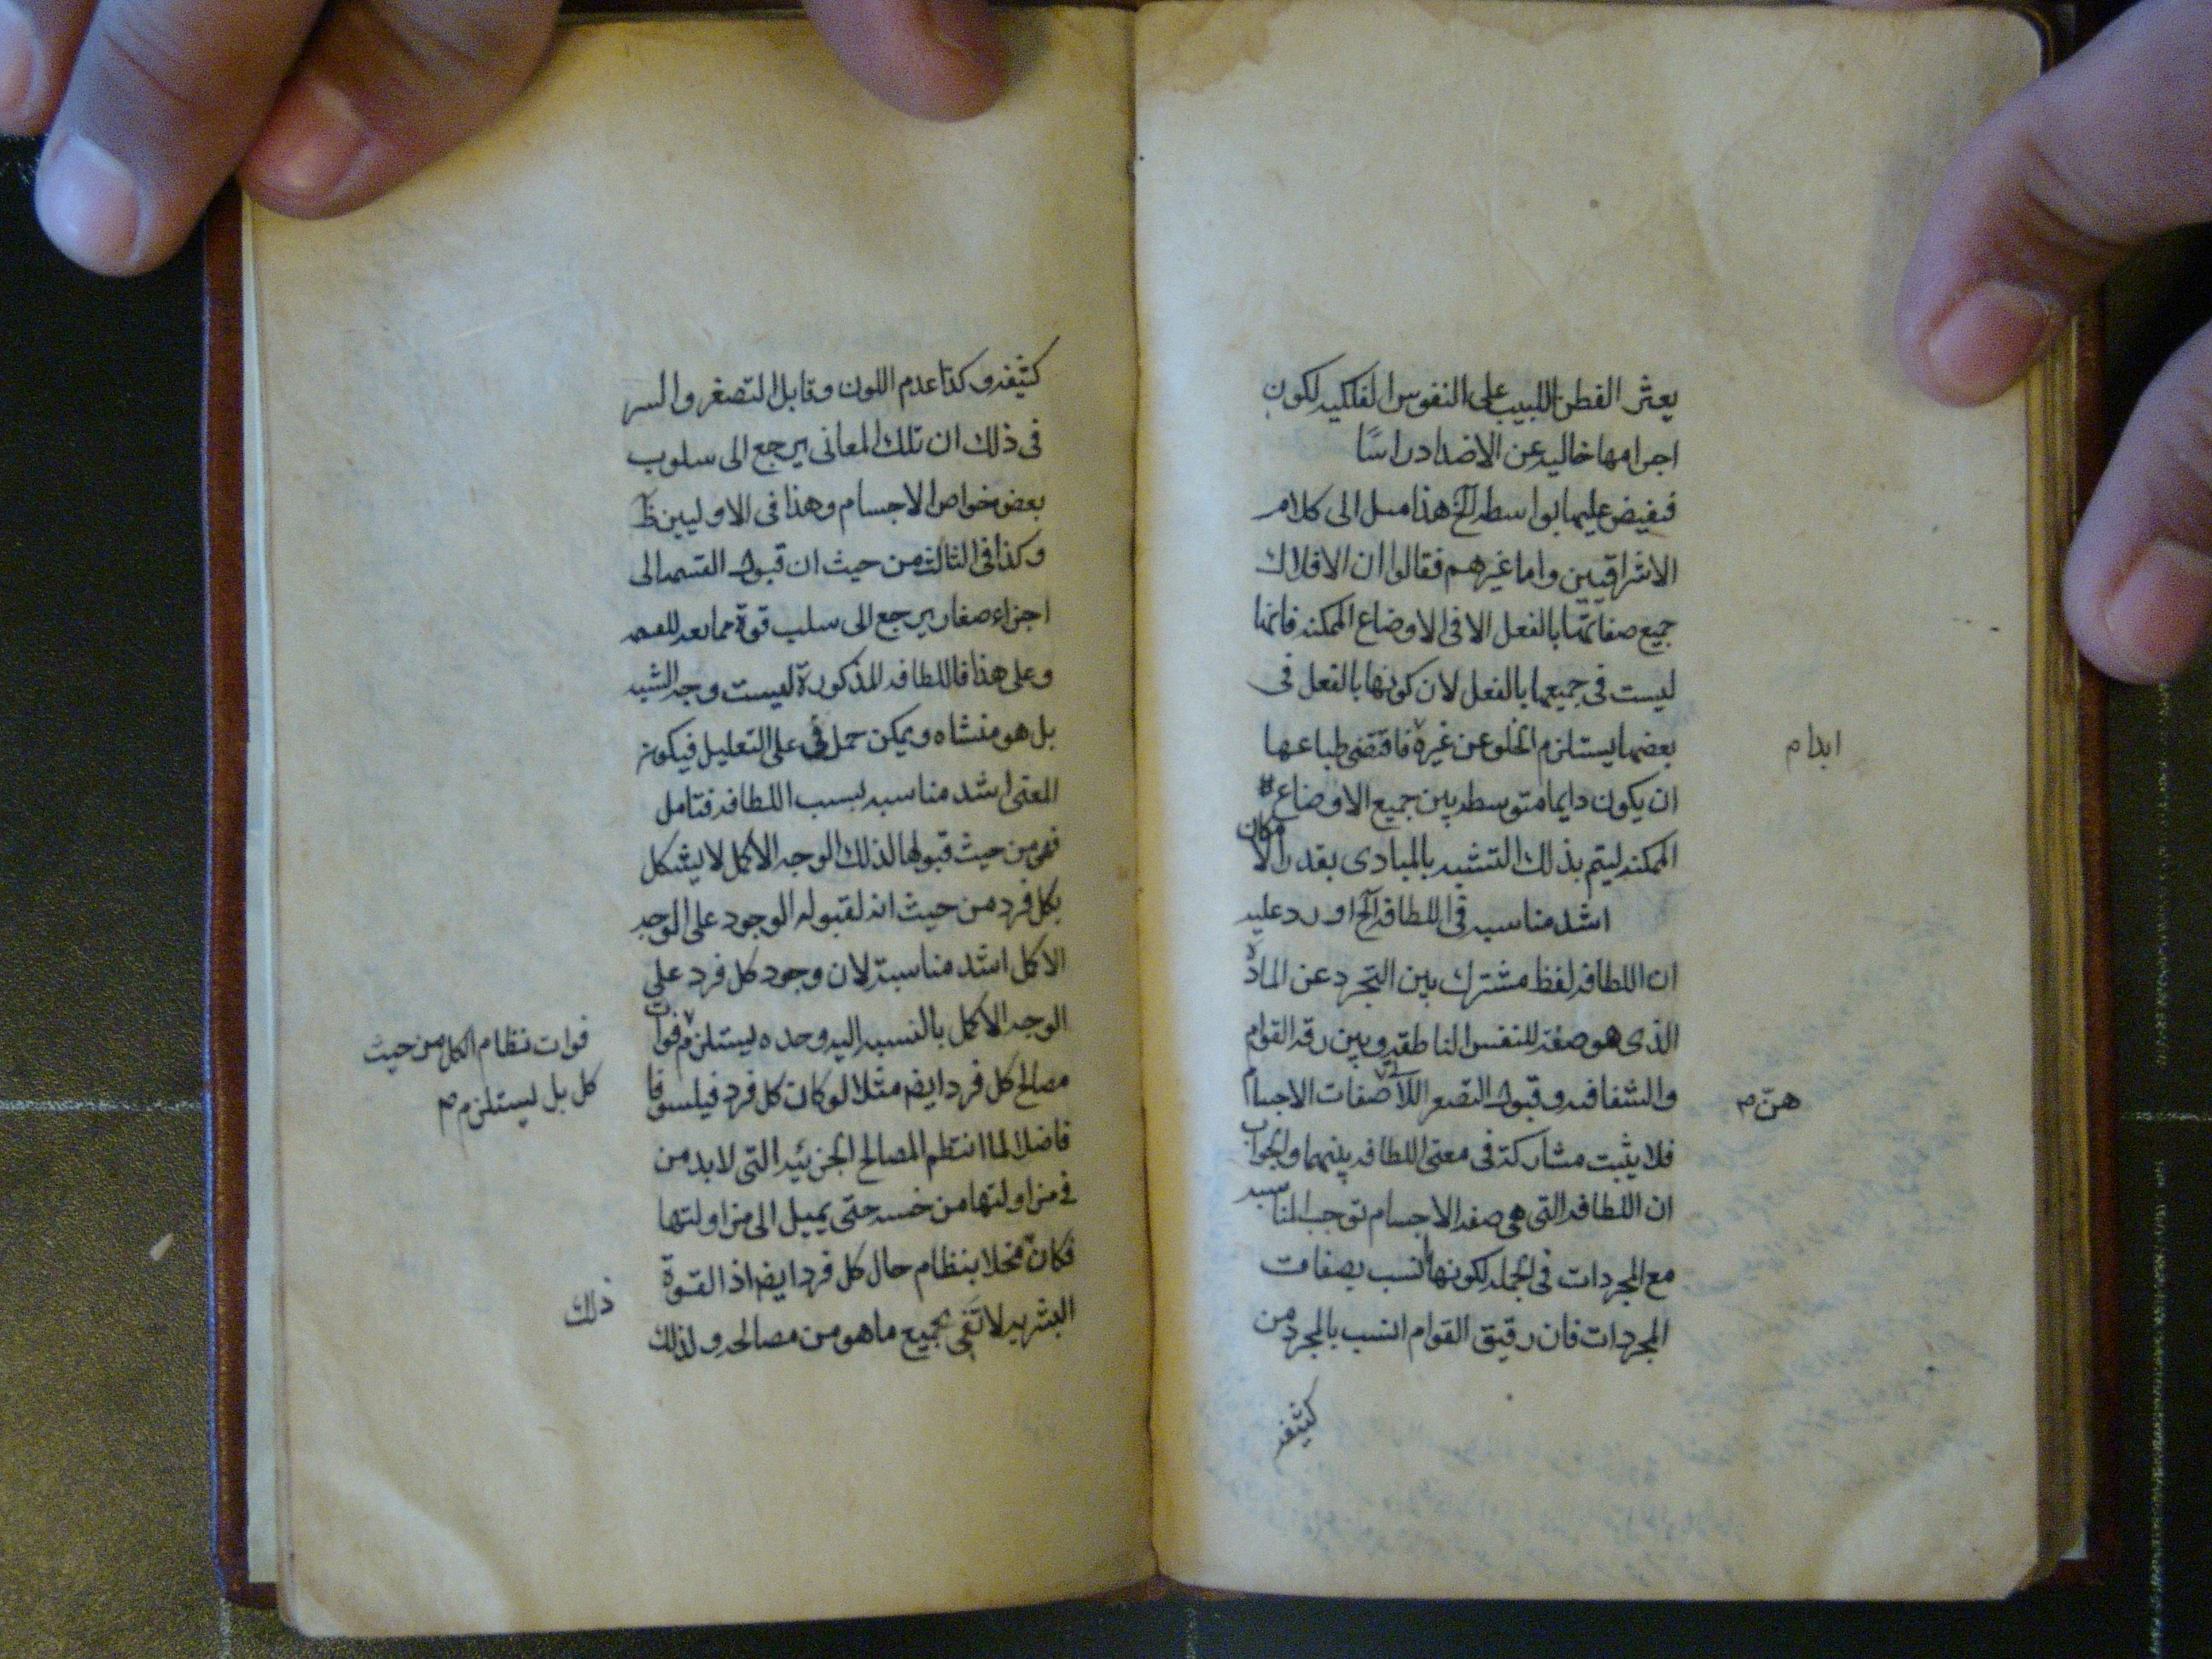 يعثر الفطن اللبيب على النفوس الفلكيه لكون
اجرامها خاليه عن الاضداد راسًا
فيفيض عليها بواسطه الخ هذا ميل الى كلام
الاشراقيين واما غيرهم فقالوا ان الافلاك
جميع صفاتها بالفعل الا فى الاوضاع الممكنه فانها
ليست فى جميعها بالفعل لان كونها بالفعل فى
بعضها يستلزم الخلو عن غيره فاقتضى طباعها
ابدا م
ان يكون دايما متوسطه بين جميع الاوضاع
الممكنه ليتم بذلك التشبه بالمبادى بقدر الامكان
اشد مناسبه فى اللطافه الخ اورد عليه
ان اللطافه لفظ مشترك بين التجرد عن المادة
الذى هو صفة للنفس الناطقه وبين رقه القوام
والشفافيه وقبول التصغر اللا صفات الاجسام
هنّ م
فلا يثبت مشاركة فى معنى اللطافه بينهما والجواب
ان اللطافه التى هى صفه الاجسام توجب المناسبه
مع المجردات فى الجمله لكونها انسب بصفات
المجردات فان رقيق القوام انسب بالمجرد من
كثيفه
كثيفه وكذا عدم اللون وقابل التصغر والسر
فى ذلك ان تلك المعانى يرجع الى سلوب
بعض خواص الاجسام وهذا فى الاوليين ظ
وكذا فى الثالث من حيث ان قبول القسمه الى
اجزاء صغار يرجع الى سلب قوة
وعلى هذا فاللطافه المذكورة ليست وجه الشبه
بل هو منشاه ويمكن حمل فى على التعليل فيكون
المعنى اشد مناسبه بسبب اللطافه فتامل
فهى من حيث قبولها لذلك الوجه الاكمل لا يشكل
بكل فرد من حيث انه لقبوله الوجود على الوجه
الاكمل اشد مناسبة لان وجود كل فرد على
الوجه الاكمل بالنسبه اليه وحده يستلزم فوات
فوات نظام الكل من حيث
كل بل يستلزم م
مصالح كل فرد ايضم مثلا لو كان كل فرد فيلسوفا
فاضلا لما انتظم المصالح الجزئيه التى لابد من
فى مزاولتها من خسه حتى يميل الى مزاولتها
فكان مخلا بنظام حال كل فرد ايضا اذ القوة
البشريه لا تفى بجميع ما هو من مصالحه ولذلك
ذلك